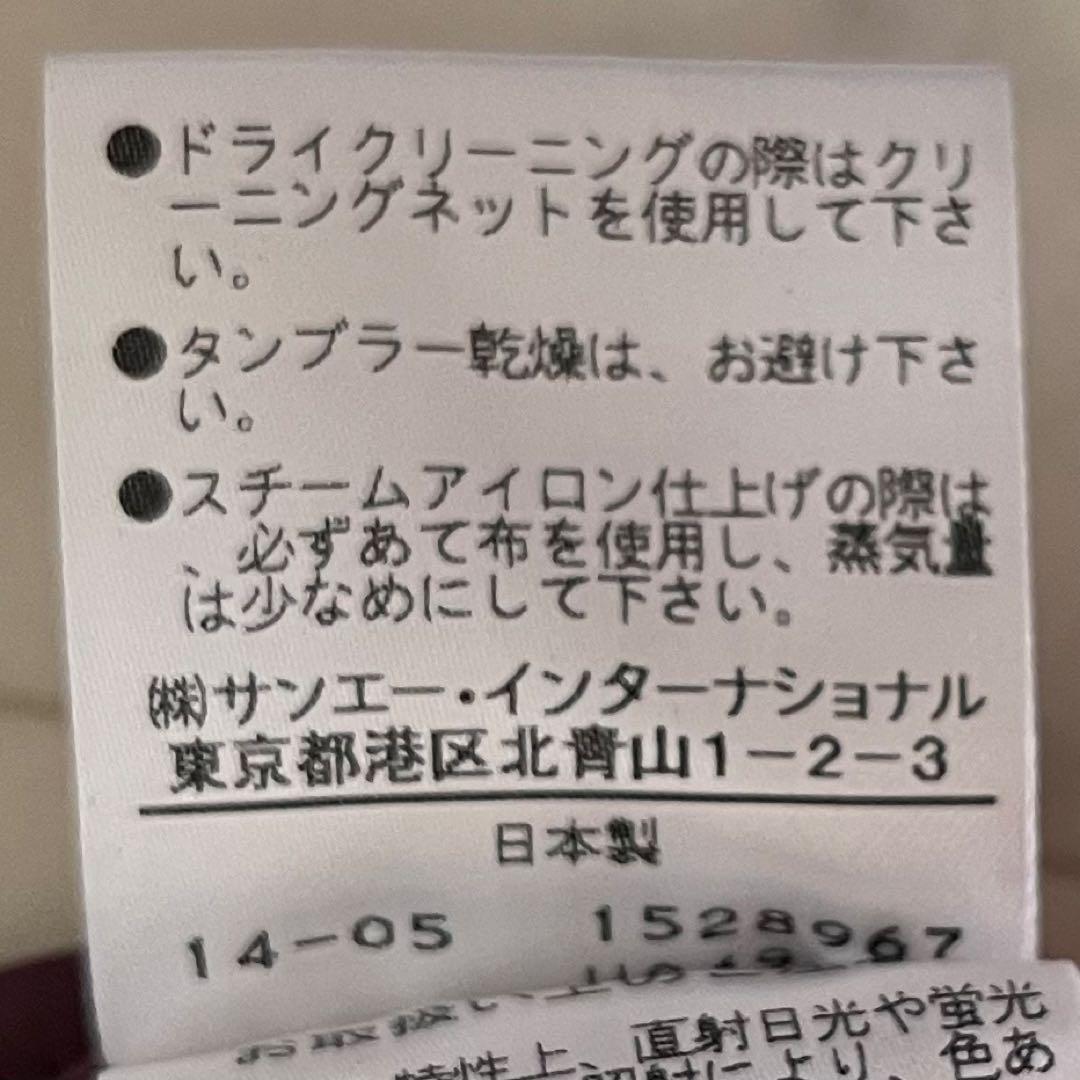 ●ドライクリーニングの際はクリ
ーニングネットを使用して下さ
い。
●タンブラー乾燥は、お避け下さ
い。
●スチームアイロン仕上げの際は
、必ずあて布を使用し、蒸気量
は少なめにして下さい。
㈱サンエー・インターナショナル
東京都港区北青山1-2-3
日本製
14-05 1528967
直射日光や蛍光
より、色あ